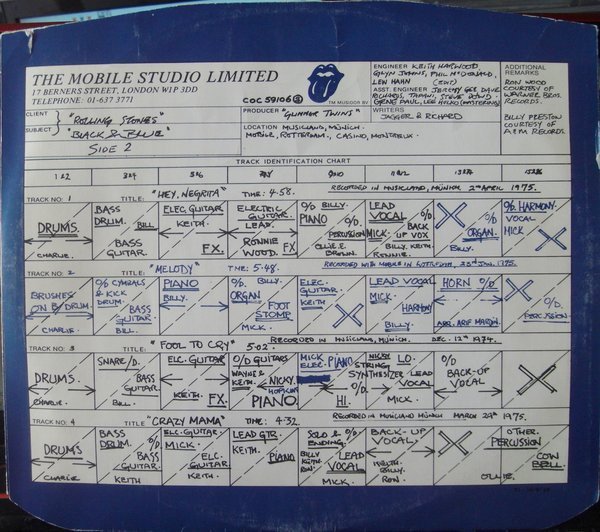 THE MOBILE STUDIO LIMITED
17 BERNERS STREET, LONDON W1P 3DD
TELEPHONE: 01-637 3771
COC 59106
TM MUSIDOR BV
ENGINEER KEITH HARWOOD,
GLYN JOHNS, PHIL McDONALD,
LEW HAHN (EDIT)
ASST. ENGINEER JEREMY GEE DAVE
RICHARDS, TAPANI, STEVE DOWD
GENE PAUL, LEE HULKO (MASTERING)
WRITERS
JAGGER & RICHARD
ADDITIONAL
REMARKS
RON WOOD
COURTESY OF
WARNER BROS.
RECORDS.
BILLY PRESTON
COURTESY OF
A&M RECORDS.
CLIENT "ROLLING STONES"
SUBJECT "BLACK & BLUE"
SIDE 2
PRODUCER "GLIMMER TWINS"
LOCATION MUSICLAND, MÜNICH.
MOBILE, ROTTERDAM, CASINO, MONTREUX.
TRACK IDENTIFICATION CHART
1 & 2 3 & 4 5 & 6 7 & 8 9 & 10 11 & 12 13 & 14 15 & 16
TRACK NO: 1 TITLE: "HEY, NEGRITA" TIME: 4·58. RECORDED IN MUSICLAND, MÜNICH 2nd APRIL 1975.
DRUMS.
CHARLIE.
BASS
DRUM. BILL.
BASS
GUITAR.
ELEC. GUITAR
KEITH.
FX.
ELECTRIC
GUITAR.
LEAD.
RONNIE
WOOD. FX
O/D BILLY.
PIANO
O/D.
PERCUSSION
OLLIE E.
BROWN.
LEAD
VOCAL
MICK. O/D
BACK
UP VOX
BILLY. KEITH.
RONNIE.
O/D.
ORGAN.
BILLY.
O/D. HARMONY.
VOCAL
MICK
TRACK NO: 2 TITLE: "MELODY" TIME: 5·48. RECORDED WITH MOBILE IN ROTTERDAM, 23rd JAN. 1975.
BRUSHES
ON B/DRUM
CHARLIE
O/D CYMBALS
& KICK
DRUM.
BASS
GUITAR.
BILL.
PIANO
BILLY.
O/D. BILLY.
ORGAN
FOOT
STOMP
MICK.
ELEC.
GUITAR.
KEITH
LEAD VOCAL
MICK.
HARMONY
BILLY.
HORN O/D
ARR. ARIF MARDIN.
O/D.
PERCUSSION.
TRACK NO: 3 TITLE: "FOOL TO CRY" 5·02. RECORDED IN MUSICLAND, MÜNICH. DEC. 12th 1974.
DRUMS.
CHARLIE.
SNARE/D.
BASS
GUITAR
BILL.
ELC. GUITAR
KEITH.
FX.
O/D GUITARS
WAYNE &
KEITH.
NICKY
HOPKINS
PIANO
MICK PIANO
ELEC.
HI.
NICKY LO.
STRING
SYNTHESIZER
LEAD
VOCAL
MICK.
O/D
BACK-UP
VOCAL
TRACK NO: 4 TITLE: "CRAZY MAMA" TIME: 4·32. RECORDED IN MUSICLAND MÜNICH MARCH 29th 1975.
DRUMS
CHARLIE
BASS
DRUM. O/D
BASS
GUITAR.
KEITH
ELC. GUITAR.
MICK.
ELC.
GUITAR
KEITH.
LEAD GTR.
KEITH.
PIANO
SOLO &
ENDING.
BILLY
KEITH
RON.
LEAD
VOCAL
MICK.
BACK-UP
VOCAL
KEITH.
BILLY.
RON
OTHER.
PERCUSSION
COW
BELL.
OLLIE.